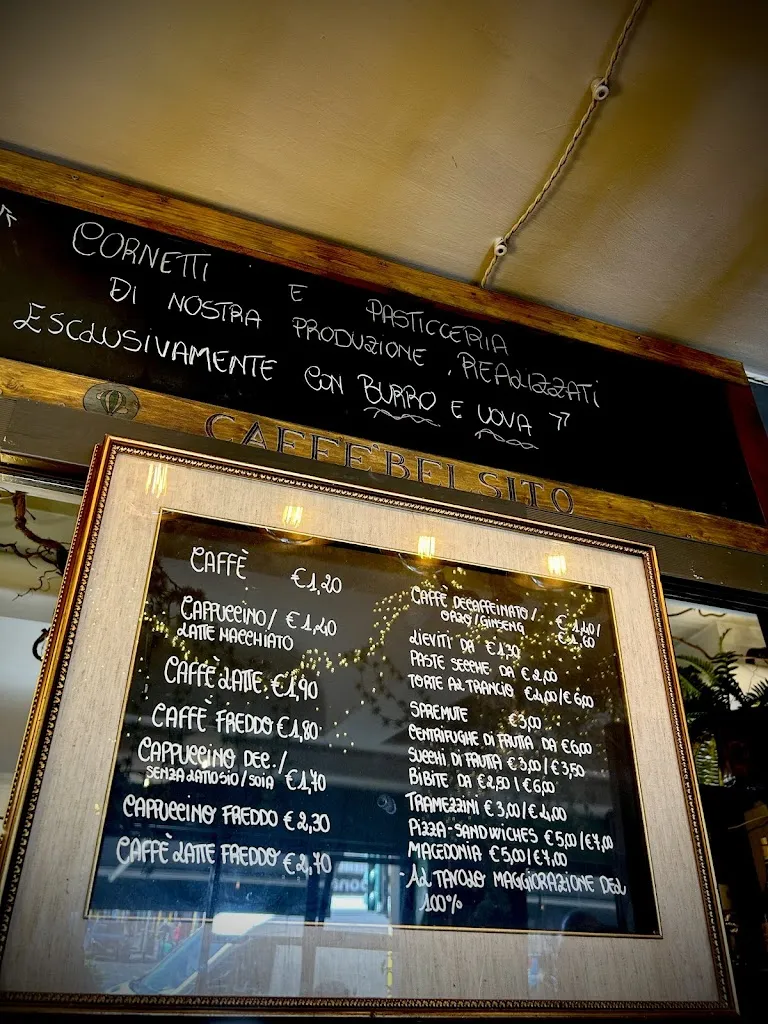 CORNETTI E PASTICCERIA
DI NOSTRA PRODUZIONE, REALIZZATI
ESCLUSIVAMENTE CON BURRO E UOVA
CAFFE' BEL SITO
CAFFÈ €1,20
CAPPUCCINO/ €1,40
LATTE MACCHIATO
CAFFÈ LATTE €1,90
CAFFÈ FREDDO €1,80
CAPPUCCINO DEC./
SENZA LATTOSIO/SOIA €1,70
CAPPUCCINO FREDDO €2,30
CAFFÈ LATTE FREDDO €2,70
CAFFÈ DECAFFEINATO/ €1,40/
ORZO/GINSENG €1,60
LIEVITI DA €1,30
PASTE SECCHE DA €2,00
TORTE AL TRANCIO €4,00/€6,00
SPREMUTE €3,00
CENTRIFUGHE DI FRUTTA DA €6,00
SUCCHI DI FRUTTA €3,00/€3,50
BIBITE DA €2,50/€6,00
TRAMEZZINI €3,00/€4,00
PIZZA-SANDWICHES €5,00/€7,00
MACEDONIA €5,00/€7,00
-AL TAVOLO MAGGIORAZIONE DEL
100%